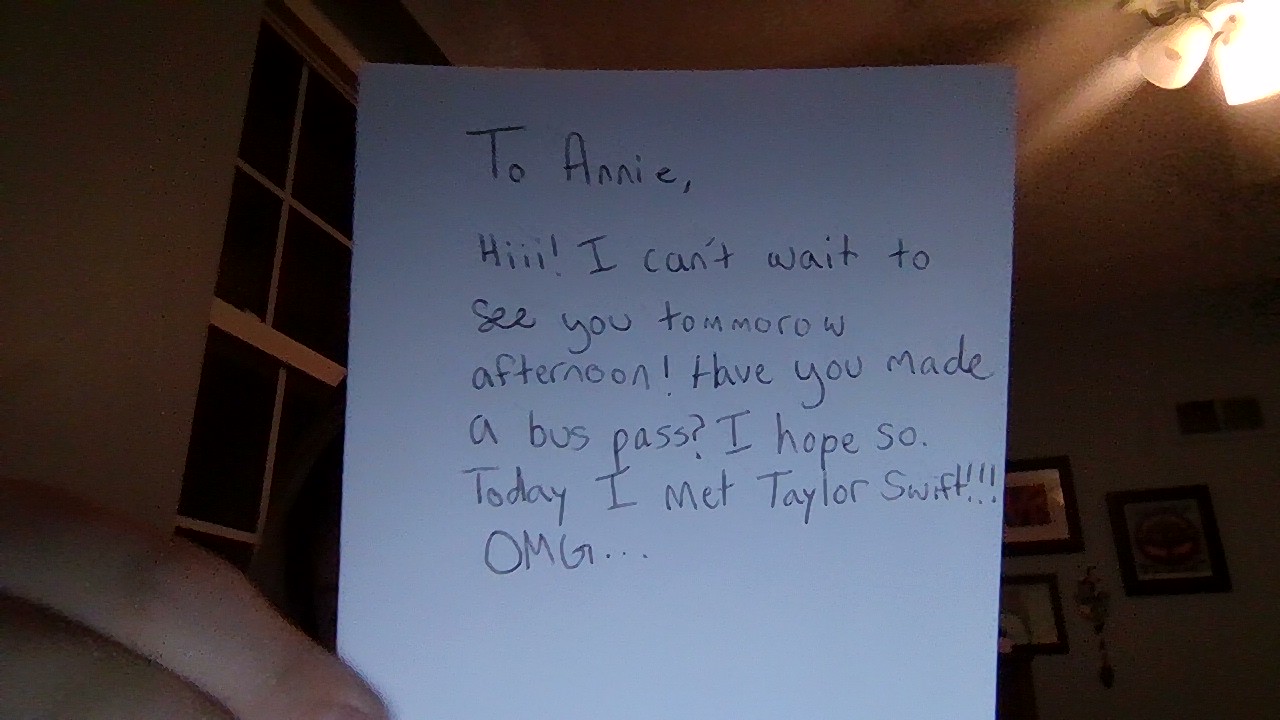 To Annie,
Hiii! I can't wait to
see you tommorow
afternoon! Have you made
a bus pass? I hope so.
Today I met Taylor Swift!!!
OMG...